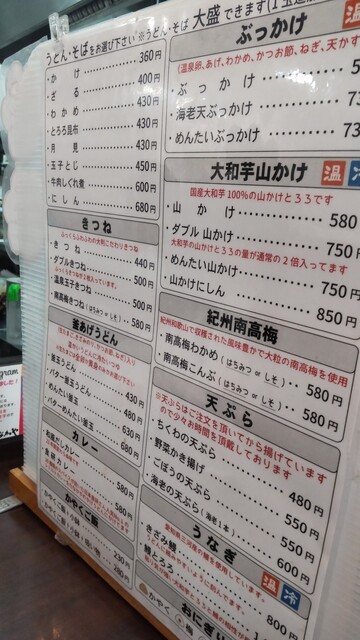 うどん・そばをお選び下さい ※うどん・そば 大盛できます
・かけ 360円
・ざる 400円
・わかめ 430円
・とろろ昆布 430円
・月見 430円
・玉子とじ 450円
・牛肉しぐれ煮 600円
・にしん 680円
きつね
・きつね 440円
・ダブルきつね 500円
・温泉玉きつね 500円
・南高梅きつね(はちみつorしそ) 580円
釜あげうどん
・釜玉うどん 430円
・バター釜玉うどん 480円
・めんたい釜玉 630円
・バターめんたい釜玉 680円
カレー
・和風だしカレー 580円
580円
かやくご飯
230円
280円
ぶっかけ
(温泉卵、あげ、わかめ、かつお節、ねぎ、天かす
・ぶっかけ
・海老天ぶっかけ
・めんたいぶっかけ
大和芋山かけ 温 冷
国産大和芋100%の山かけとろろです
・山かけ 580
・ダブル山かけ 750
大和芋の山かけとろろの量が通常の2倍入ってます
・めんたい山かけ 750円
・山かけにしん 850円
紀州南高梅
紀州和歌山で収穫された風味豊かで大粒の南高梅を使用
・南高梅わかめ(はちみつorしそ) 580円
・南高梅こんぶ(はちみつorしそ) 580円
天ぷら
※天ぷらはご注文を頂いてから揚げています
ので少々お時間を頂戴しております
・ちくわの天ぷら 480円
・野菜かき揚げ 550円
・ごぼうの天ぷら 550円
・海老の天ぷら(海老1本) 600円
うなぎ 温 冷
愛知県三河産の鰻を使用しています。
・きざみ鰻 800
・鰻とろろ
おにぎり
・かやく ・梅